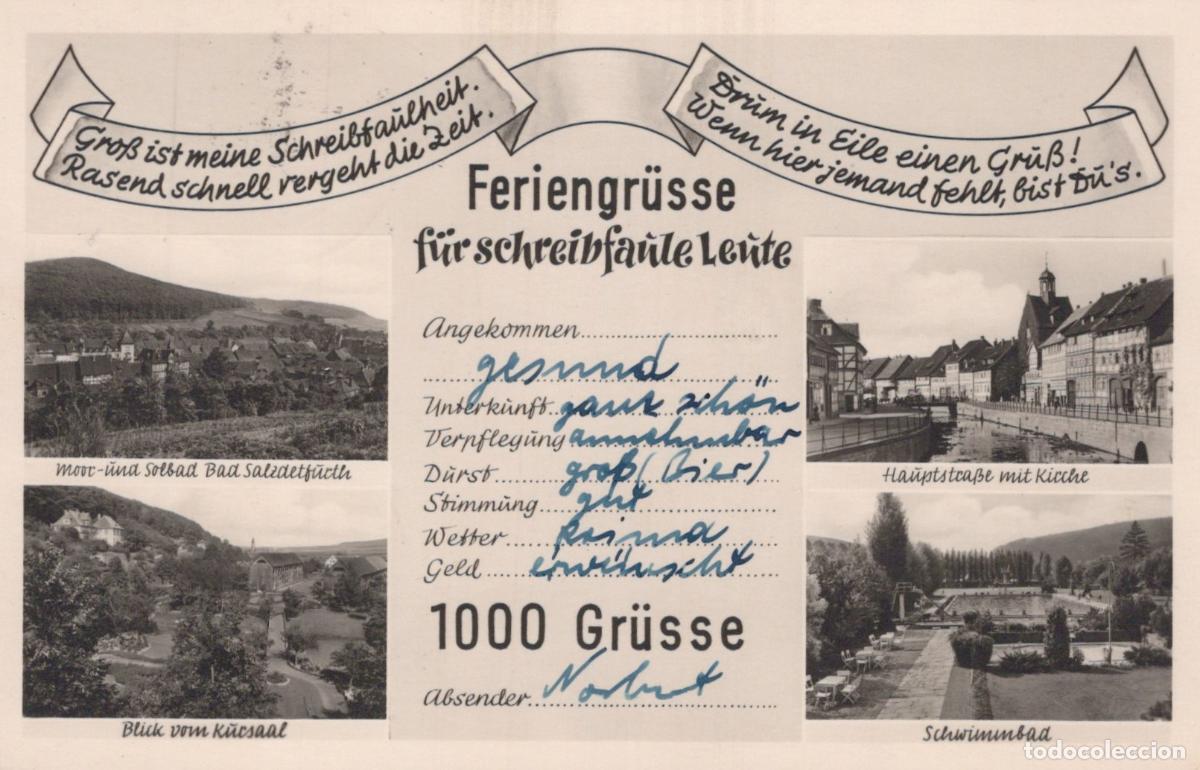 Groß ist meine Schreibfaulheit.
Rasend schnell vergeht die Zeit.
Drum in Eile einen Gruß!
Wenn hier jemand fehlt, bist Du's.
Feriengrüsse
für schreibfaule Leute
Angekommen
gesund
Unterkunft ganz schön
Verpflegung annehmbar
Durst groß (Bier)
Stimmung gut
Wetter
Geld erwünscht
1000 Grüsse
Absender Norbert
Moor- und Solbad Bad Salzdetfurth
Blick vom Kursaal
Hauptstraße mit Kirche
Schwimmbad
todocoleccion